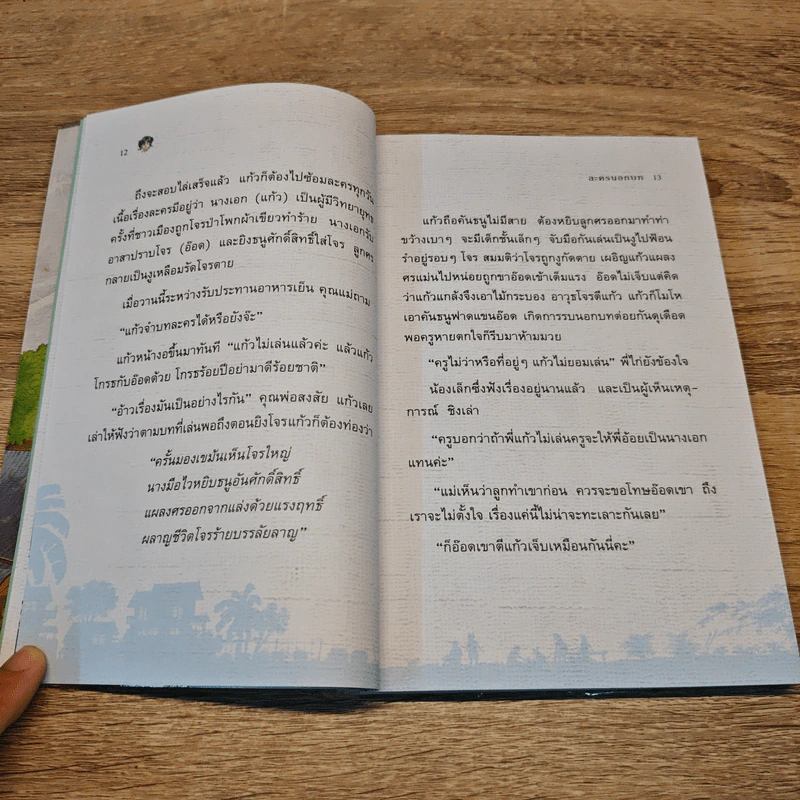 12
ถึงจะสอบไล่เสร็จแล้ว แก้วก็ต้องไปซ้อมละครทุกวัน
เนื้อเรื่องละครมีอยู่ว่า นางเอก (แก้ว) เป็นผู้มีวิทยายุทธ
ครั้งที่ชาวเมืองถูกโจรป่าโพกผ้าเขียวทำร้าย นางเอกรับ
อาสาปราบโจร (อ๊อด) และยิงธนูศักดิ์สิทธิ์ใส่โจร ลูกศร
กลายเป็นงูเหลือมรัดโจรตาย
เมื่อวานนี้ระหว่างรับประทานอาหารเย็น คุณแม่ถาม
“แก้วจำบทละครได้หรือยังจ๊ะ”
แก้วหน้างอขึ้นมาทันที “แก้วไม่เล่นแล้วค่ะ แล้วแก้ว
โกรธกับอ๊อดด้วย โกรธร้อยปีอย่ามาดีร้อยชาติ”
“อ้าวเรื่องมันเป็นอย่างไรกัน” คุณพ่อสงสัย แก้วเลย
เล่าให้ฟังว่าตามบทที่เล่นพอถึงตอนยิงโจรแก้วก็ต้องท่องว่า
“ครั้นมองเขม้นเห็นโจรใหญ่
นางมือไวหยิบธนูอันศักดิ์สิทธิ์
แผลงศรออกจากแล่งด้วยแรงฤทธิ์
ผลาญชีวิตโจรร้ายบรรลัยลาญ”
ละครนอกบท 13
แก้วถือคันธนูไม่มีสาย ต้องหยิบลูกศรออกมาทำท่า
ขว้างเบาๆ จะมีเด็กชั้นเล็กๆ จับมือกันเล่นเป็นงูไปฟ้อน
รำอยู่รอบๆ โจร สมมติว่าโจรถูกงูกัดตาย เผอิญแก้วแผลง
ศรแม่นไปหน่อยถูกขาอ๊อดเข้าเต็มแรง อ๊อดไม่เจ็บแต่คิด
ว่าแก้วแกล้งจึงเอาไม้กระบอง อาวุธโจรตีแก้ว แก้วก็โมโห
เอาคันธนูฟาดแขนอ๊อด เกิดการรบนอกบทต่อยกันดุเดือด
พอครูหายตกใจก็รีบมาห้ามมวย
“ครูไม่ว่าหรือที่อยู่ๆ แก้วไม่ยอมเล่น” พี่ไก่ยังข้องใจ
น้องเล็กซึ่งฟังเรื่องอยู่นานแล้ว และเป็นผู้เห็นเหตุ-
การณ์ ชิงเล่า
“ครูบอกว่าถ้าพี่แก้วไม่เล่นครูจะให้พี่อ้อยเป็นนางเอก
แทนค่ะ”
“แม่เห็นว่าลูกทำเขาก่อน ควรจะขอโทษอ๊อดเขา ถึง
เราจะไม่ตั้งใจ เรื่องแค่นี้ไม่น่าจะทะเลาะกันเลย”
“ก็อ๊อดเขาตีแก้วเจ็บเหมือนกันนี่คะ”